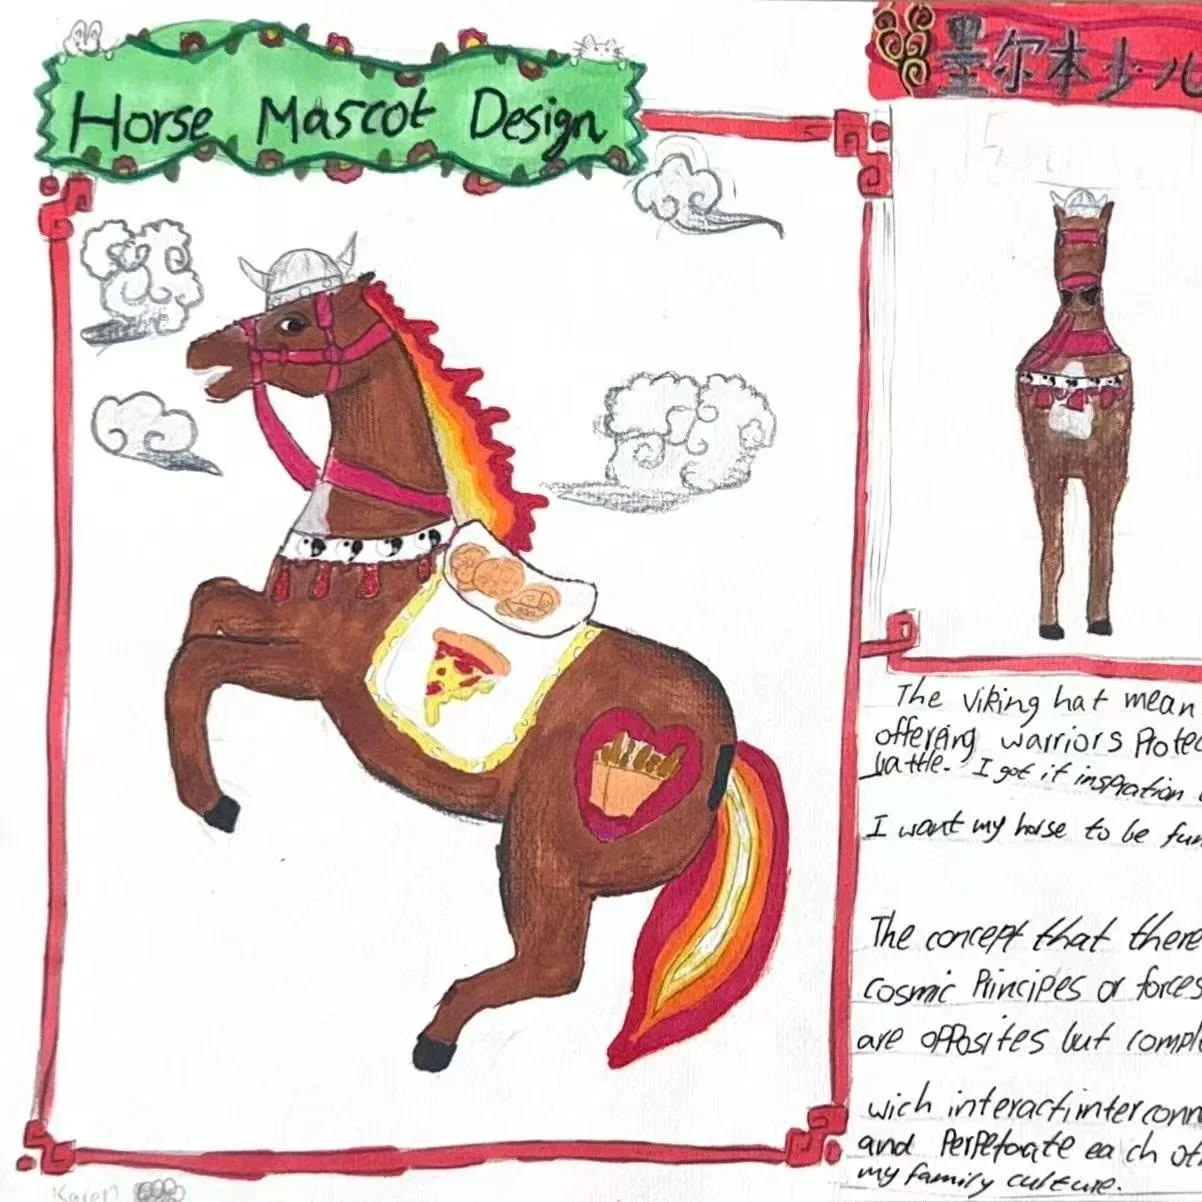 Horse Mascot Design
墨尔本少儿
The viking hat mean
offering warriors Protec
battle. I got it inspration
I want my horse to be fun
The concept that there
cosmic Principes or forces
are opposites but comple
wich interact,interconn
and Perpetorate each oth
my family culture.
Karen